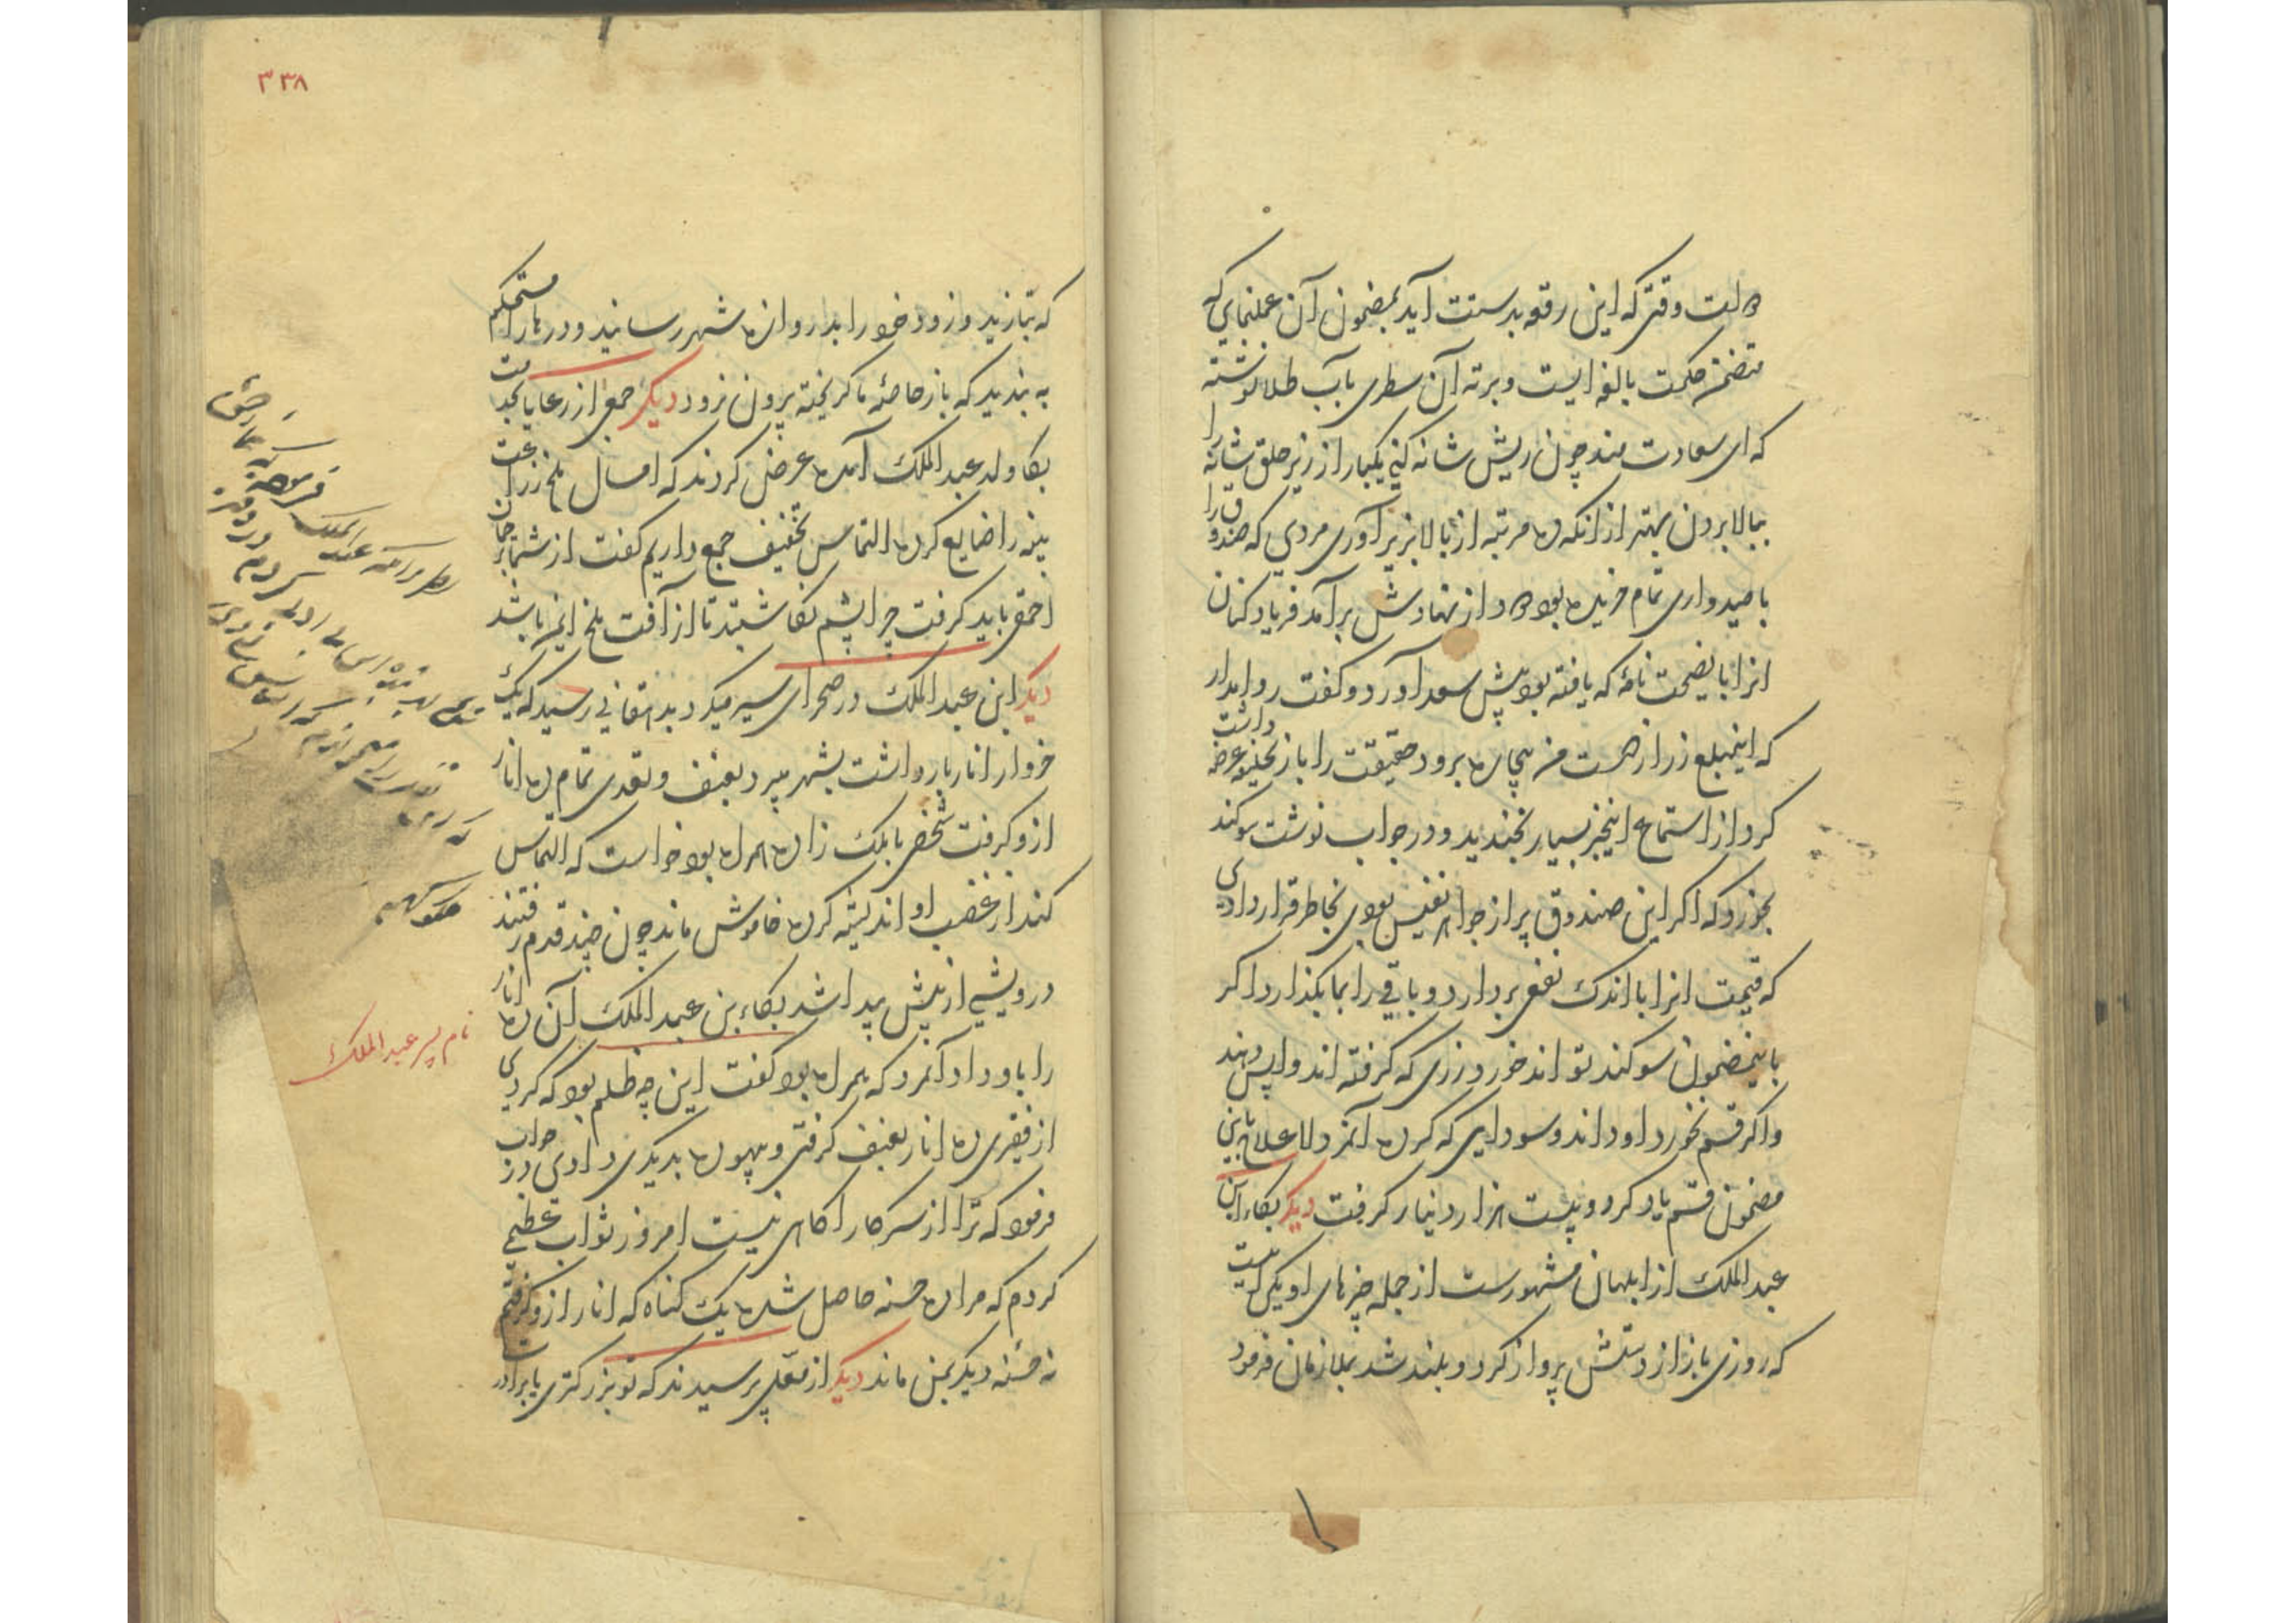 دولت وقتی که این رقعه بدستت آید بمضمون آن عملنمای که
متضمن حکمت بالغه ایست و برته آن سطری بآب طلا نوشته
که ای سعادت مند چون ریش شانه کنی یکبار از زیر حلق شانه را
ببالا بردن بهتر از انکه ده مرتبه از بالا بزیر آوری مردی که صندوق را
بامیدواری تمام خریده بود دود از نهادش برآمد فریاد کنان
انرا با نصیحت نامهٔ که یافته بود پیش سعد آورد و کفت روا مدار
که اینمبلغ زر از دست من بیچاره برود حقیقت را باز بخلیفه عرضه داشت
کرد از استماع اینخبر بسیار بخندید و در جواب نوشت سوکند
بخورد که اکر این صندوق پر از جواهر نفیس بودی بخاطر قرار دادی
که قیمت انرا با اندک نفعی بردارد و باقی را بما بکذارد اکر
باینمضمون سوکند تواند خورد زری که کرفته اند واپس دهند
واکر قسم نخورد او داند و سودایی که کرده آنمرد لاعلاج باین
مضمون قسم یاد کرد و بیست هزار دینار کرفت دیکر بکاء ابن
عبدالملک از ابلهان مشهورست از جمله خبرهای او یکی اینست
که روزی باز از دستش پرواز کرد و بلند شد بملازمان فرمود
۳۳۸
که بتازید و زود خود را بدروازه شهر رسانید و درها را مستحکم
به بندید که باز خاصهٔ ما کریخته بیرون نرود دیکر جمعی از رعایا بخدمت
بکا ولد عبدالملک آمده عرض کردند که امسال ملخ زراعت
پنبه را ضایع کرده التماس تخفیف جمع داریم کفت از شما
احمق باید کرفت چرا پشم نکاشتید تا از آفت ملخ ایمن باشد
دیکر این عبدالملک در صحرا سیر میکرد بدهقانی رسید که یک
خروار انار بار داشت بشهر میبرد بعنف و تعدی تمام ده انار
از و کرفت شخصی با ملک زاده همراه بود خواست که التماس
کند از غضب او اندیشه کرده خاموش ماند چون چند قدم رفتند
درویشی از پیش پیدا شد بکاء بن عبدالملک آن ده انار
را باو داد آنمرد که همراه بود کفت این چه ظلم بود که کردی
از فقیری ده انار بعنف کرفتی و بیهوده بدیکری دادی در جواب
فرمود که ترا از سر کار اکاهی نیست امروز ثواب عظیمی
کردم که مرا ده حسنه حاصل شده یک کناه که انار از و کرفتم
نه حسنه دیکر بمن ماند دیکر از مغلی پرسیدند که تو بزرکتری یا برادرت
نام پسر عبدالملک